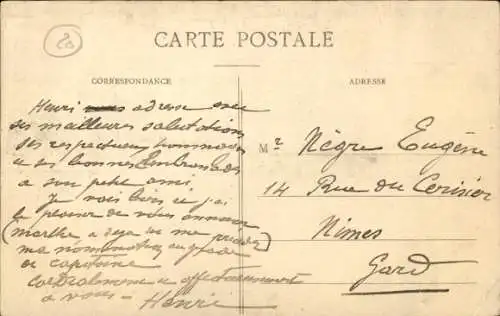 20
CARTE POSTALE
CORRESPONDANCE
ADRESSE
Henri vous adresse avec
ses meilleures salutations
ses respectueux hommages
et ses bonnes embrassades
à son petit ami
Je vais bien et j'ai
le plaisir de vous annoncer
(Marthe a déjà dû me précéder)
ma nomination au grade
de capitaine
Cordialement et affectueusement
à vous - Henri
Mr Nègre Eugène
14 Rue du Cerisier
Nimes
Gard